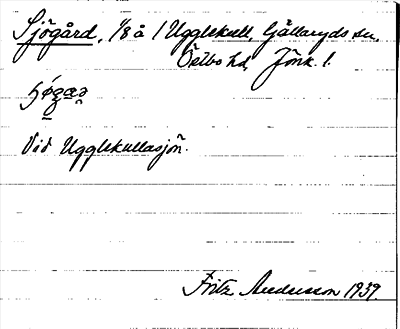 Sjögård, 1/8 å 1 Ugglekull, Gällaryds sn,
Östbo hd, Jönk. l.
Vid Ugglekullasjön.
Fritz Andersson 1939.